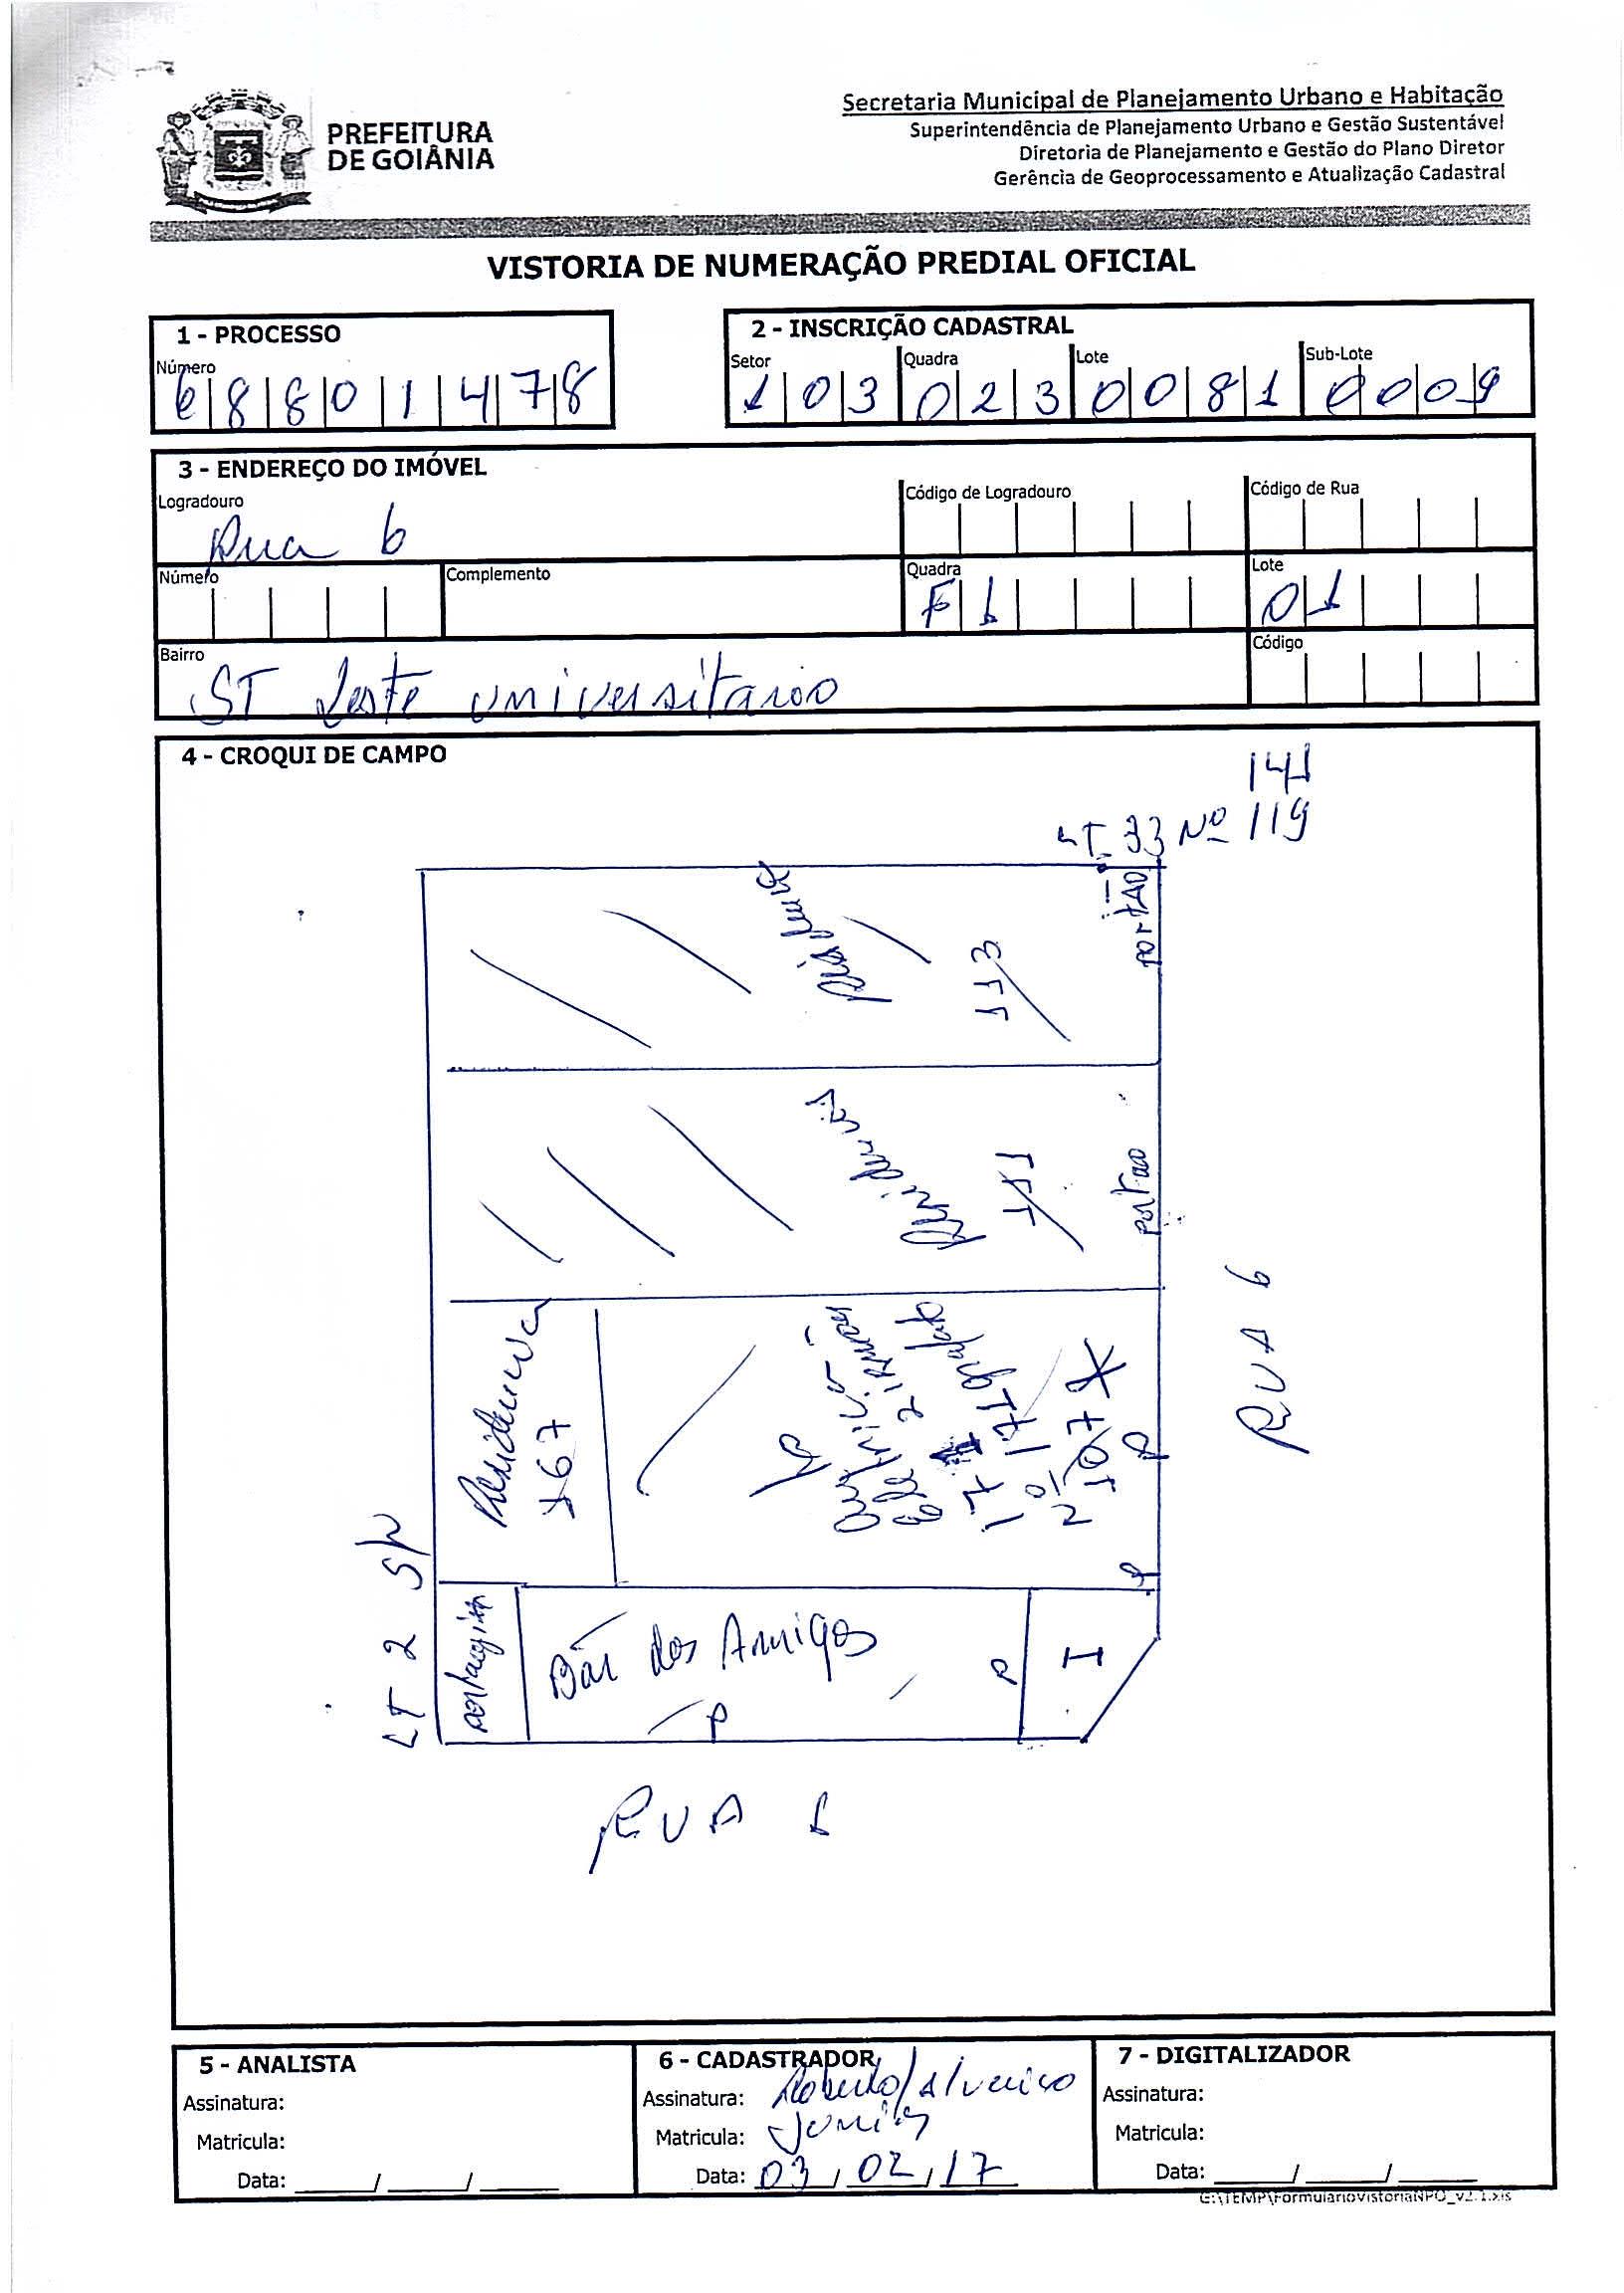 PREFEITURA
DE GOIÂNIA
Secretaria Municipal de Planejamento Urbano e Habitação
Superintendência de Planejamento Urbano e Gestão Sustentável
Diretoria de Planejamento e Gestão do Plano Diretor
Gerência de Geoprocessamento e Atualização Cadastral
VISTORIA DE NUMERAÇÃO PREDIAL OFICIAL
1 - PROCESSO
Número
68801478
2 - INSCRIÇÃO CADASTRAL
Setor Quadra Lote Sub-Lote
103 023 0081 0009
3 - ENDEREÇO DO IMÓVEL
Logradouro Código de Logradouro Código de Rua
Rua 6
Número Complemento Quadra Lote
F1 01
Bairro Código
ST Leste universitario
4 - CROQUI DE CAMPO
141
LT 33 Nº 119
portão
113
portao
111
Residencia
167
Nº 107
RUA 6
LT 2 S/N
Bar dos Amigos
P
P
RUA 1
5 - ANALISTA
Assinatura:
Matricula:
Data: ____/____/____
6 - CADASTRADOR
Assinatura: Roberto/
Matricula:
Data: 03/02/17
7 - DIGITALIZADOR
Assinatura:
Matricula:
Data: ____/____/____
G:\TEMP\FormularioVistoriaNPO_v2.1.xls